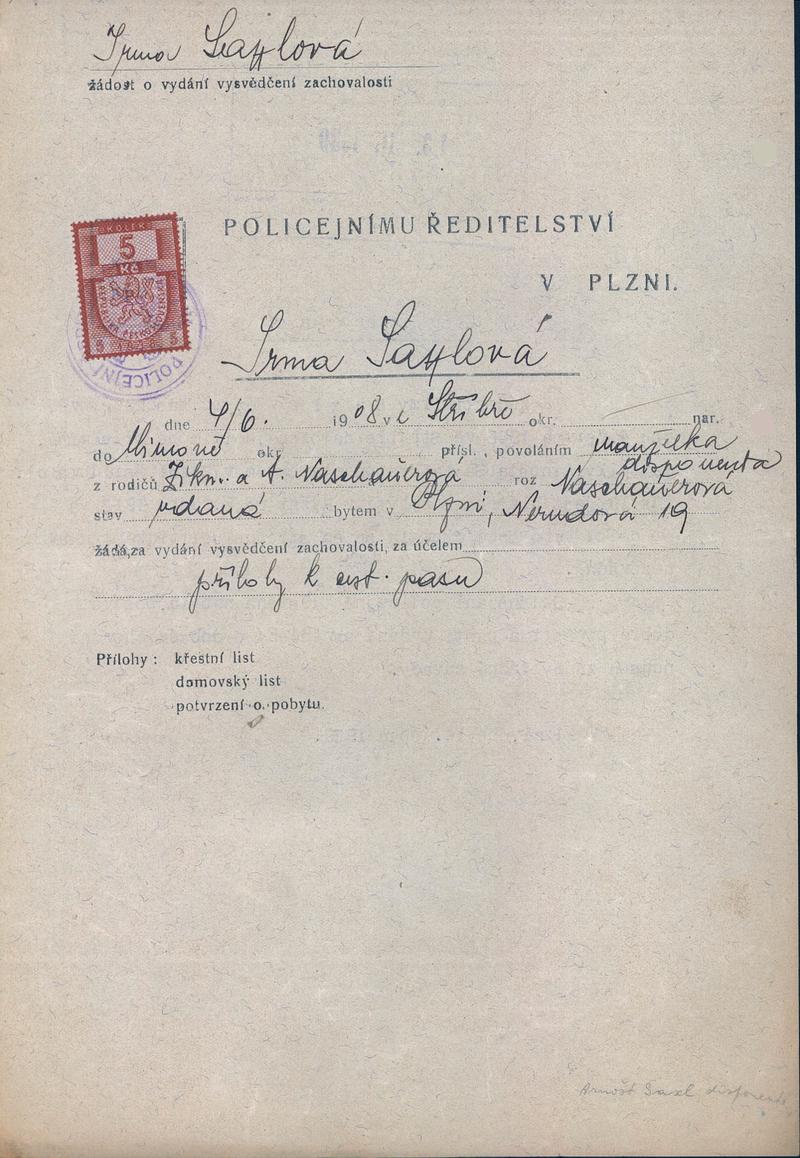 Irma Saxlová
žádost o vydání vysvědčení zachovalosti
KOLEK
5
Kč
POLICEJNÍ
POLICEJNÍMU ŘEDITELSTVÍ
V PLZNI.
Irma Saxlová
dne 4/6. 1908 v Stříbře okr. nar.
do Mimoně okr. přísl., povoláním manželka
disponenta
z rodičů Zikm. a A. Naschauerová roz Naschauerová
stav vdaná bytem v Plzni, Nerudová 19
žádá, za vydání vysvědčení zachovalosti, za účelem
přílohy k cest. pasu
Přílohy: křestní list
domovský list
potvrzení o pobytu.
Arnošt Saxl disponent